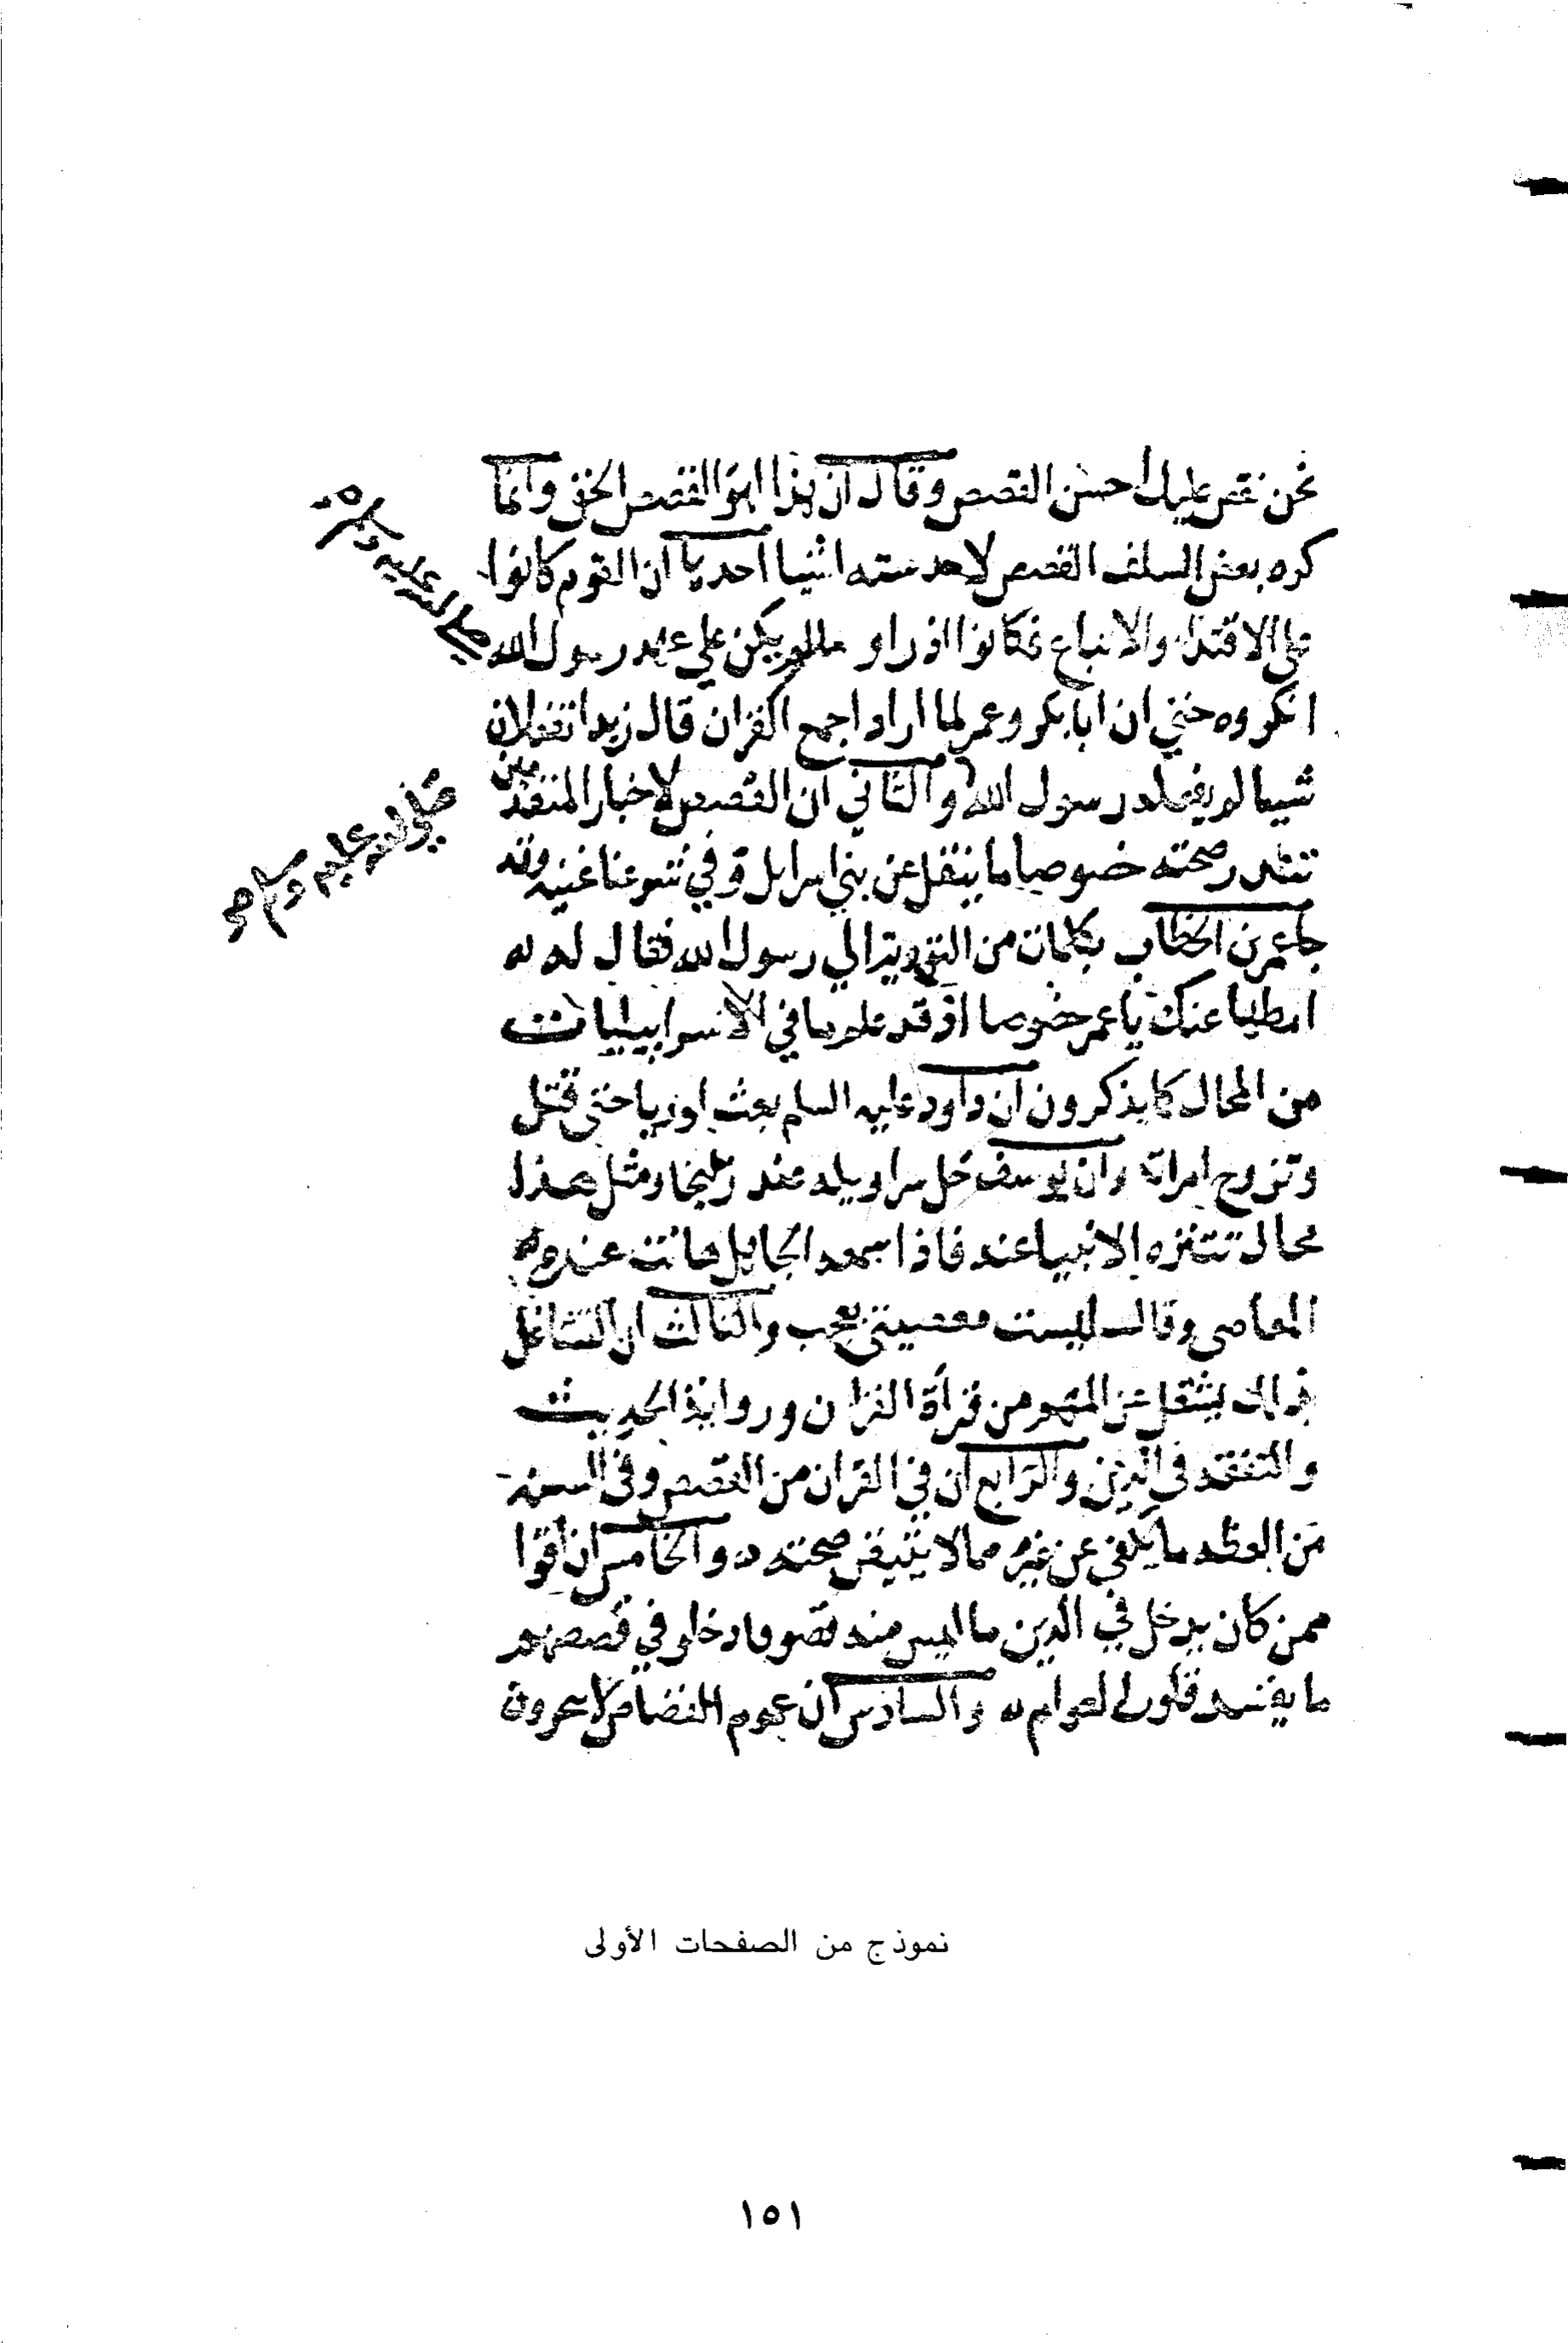 نحن نقص عليك احسن القصص وقال ان هذا لهو القصص الحق وانما
كره بعض السلف القصص لاحد ستة اشيا احدها ان القوم كانوا
على الاقتدا والاتباع فكانوا اذا راو مالم يكن علي عهد رسول الله
صلى الله عليه وسلم
انكروه حتي ان ابا بكر وعمر لما ارادا جمع القران قال زيد اتفعلان
شييا لم يفعله رسول الله والثاني ان القصص لاخبار المتقدمين
صلى الله عليه وسلم صح
تندر صحته خصوصا ما ينقل عن بني اسرايل وفي شرعنا غنية وقد
جا عمر بن الخطاب بكلمات من التورية الي رسول الله فقال له
امطها عنك يا عمر خصوصا اذ قد علم ما في الاسراييليات
من المحال كما يذكرون ان داود عليه السلم بعث اوريا حتى قتل
وتزوج امراته وان يوسف حل سراويله عند زليخا ومثل هذا
محال تتنزه الانبيا عنه فاذا سمعه الجاهل هانت عنده
المعاصي وقال ليست معصيتي بعجب والثالث ان التشاغل
بذلك يشغل عن المهم من قرأة القران ورواية الحديث
والتفقه في الدين والرابع ان في القران من القصص وفي السنة
من العظة ما يكفي عن غيره مما لا يتيقن صحته والخامس ان اقوا
ممن كان يدخل في الدين ما ليس منه قصوا فادخلو في قصصهم
ما يفسد قلوب العوام والسادس ان عموم القصاص لا يتحرون
نموذج من الصفحات الأولى
١٥١